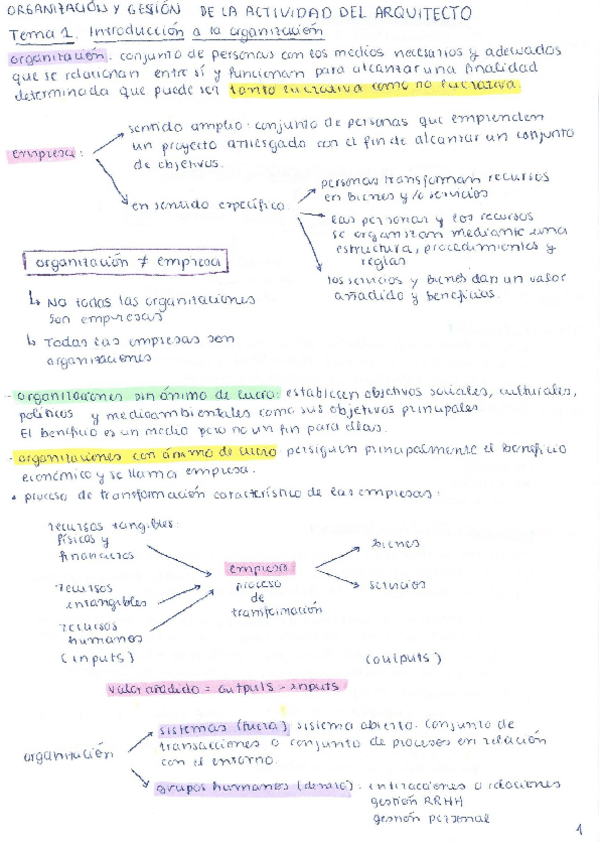 ORGANIZACIÓN Y GESIÓN DE LA ACTIVIDAD DEL ARQUITECTO
Tema 1. Introducción a la organización
organización: conjunto de personas con los medios necesarios y adecuados
que se relacionan entre sí y funcionan para alcanzar una finalidad
determinada que puede ser tanto lucrativa como no lucrativa.
empresa:
sentido amplio: conjunto de personas que emprenden
un proyecto arriesgado con el fin de alcanzar un conjunto
de objetivos.
en sentido específico
personas transforman recursos
en bienes y/o servicios
las personas y los recursos
se organizan mediante una
estructura, procedimientos y
reglas
los servicios y bienes dan un valor
añadido y beneficios.
organización ≠ empresa
↳ No todas las organizaciones
son empresas
↳ Todas las empresas son
organizaciones
- organizaciones sin ánimo de lucro: establecen objetivos sociales, culturales,
políticos y medioambientales como sus objetivos principales
El beneficio es un medio pero no un fin para ellas.
- organizaciones con ánimo de lucro: persiguen principalmente el beneficio
económico y se llama empresa.
• proceso de transformación característico de las empresas:
recursos tangibles:
físicos y
financieros
recursos
intangibles
recursos
humanos
(inputs)
empresa
proceso
de
transformación
bienes
servicios
(outputs)
valor añadido = outputs - inputs
organización
sistemas (fuera) sistema abierto. conjunto de
transacciones o conjunto de procesos en relación
con el entorno.
grupos humanos (dentro): interacciones o relaciones
gestión RRHH
gestión personal
1